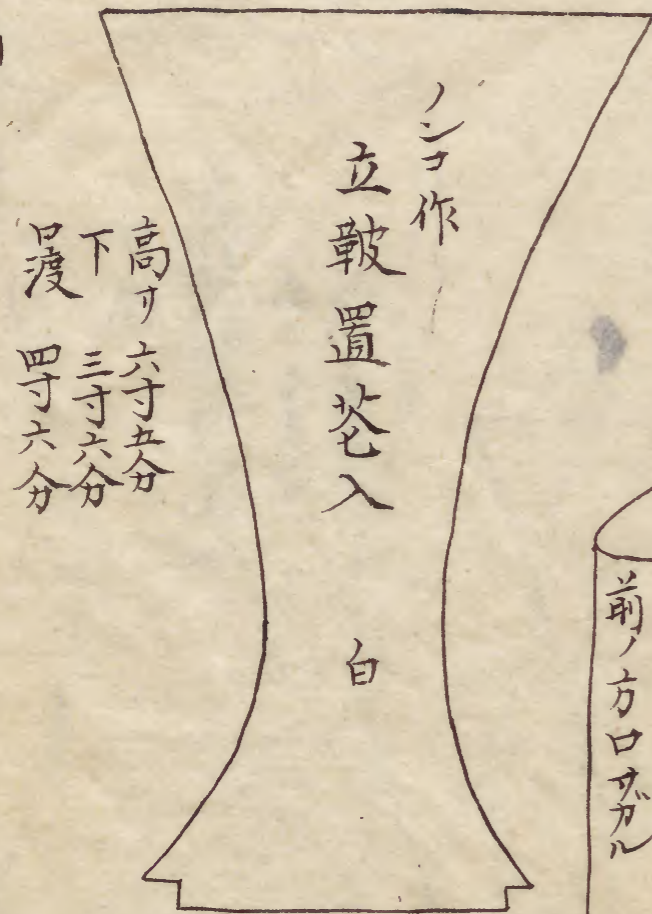 前ノ方口サガル
ノンコ作
立皷置苍入
白
高サ 六寸五分
下 三寸六分
口渡 四寸六分